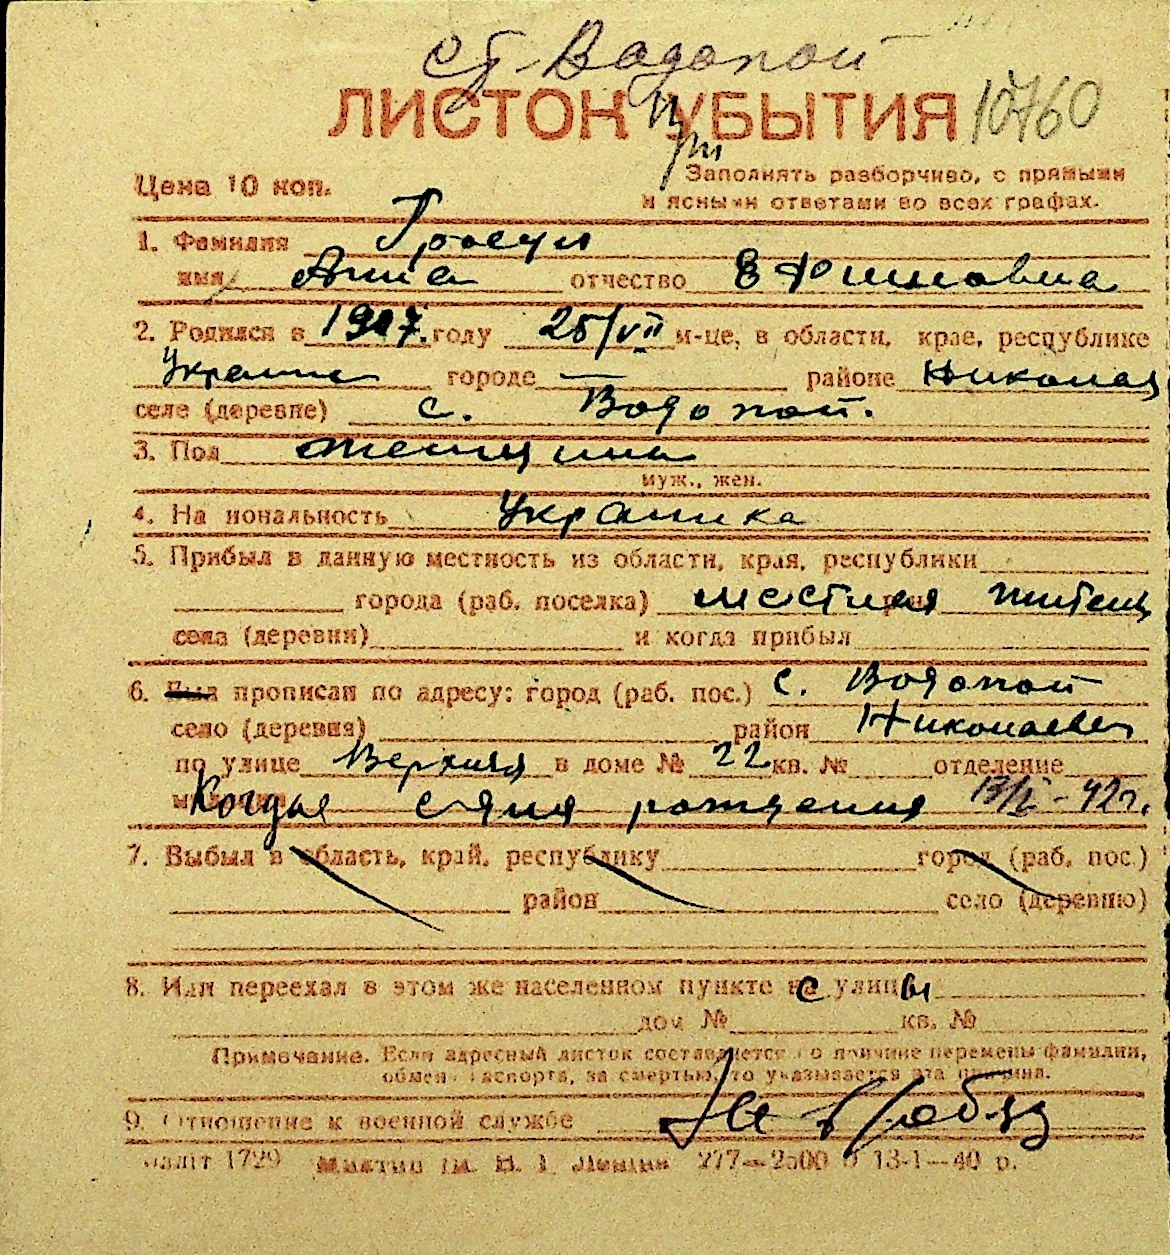 ст. Водопой
ЛИСТОК УБЫТИЯ 10760
Цена 10 коп.
Заполнять разборчиво, с прямыми
и ясными ответами во всех графах.
1. Фамилия Гросул
имя Анна отчество Ефимовна
2. Родился в 1927. году 25/VII м-це, в области, крае, республике
Украина городе — районе Николаев
селе (деревне) с. Водопой.
3. Пол женщина
муж., жен.
4. Национальность Украинка
5. Прибыл в данную местность из области, края, республики
города (раб. поселка) местная житель
села (деревни) и когда прибыл
6. Был прописан по адресу: город (раб. пос.) с. Водопой
село (деревня) район Николаевск
по улице Верхняя в доме № 22 кв. № отделение
Когда с дня рождения 13/I - 42 г.
7. Выбыл в область, край, республику город (раб. пос.)
район село (деревню)
8. Или переехал в этом же населенном пункте с улицы
дом № кв. №
Примечание. Если адресный листок составляется по причине перемены фамилии,
обмена паспорта, за смертью, то указывается эта причина.
9. Отношение к военной службе
1729 277—2500 13-1—40 р.